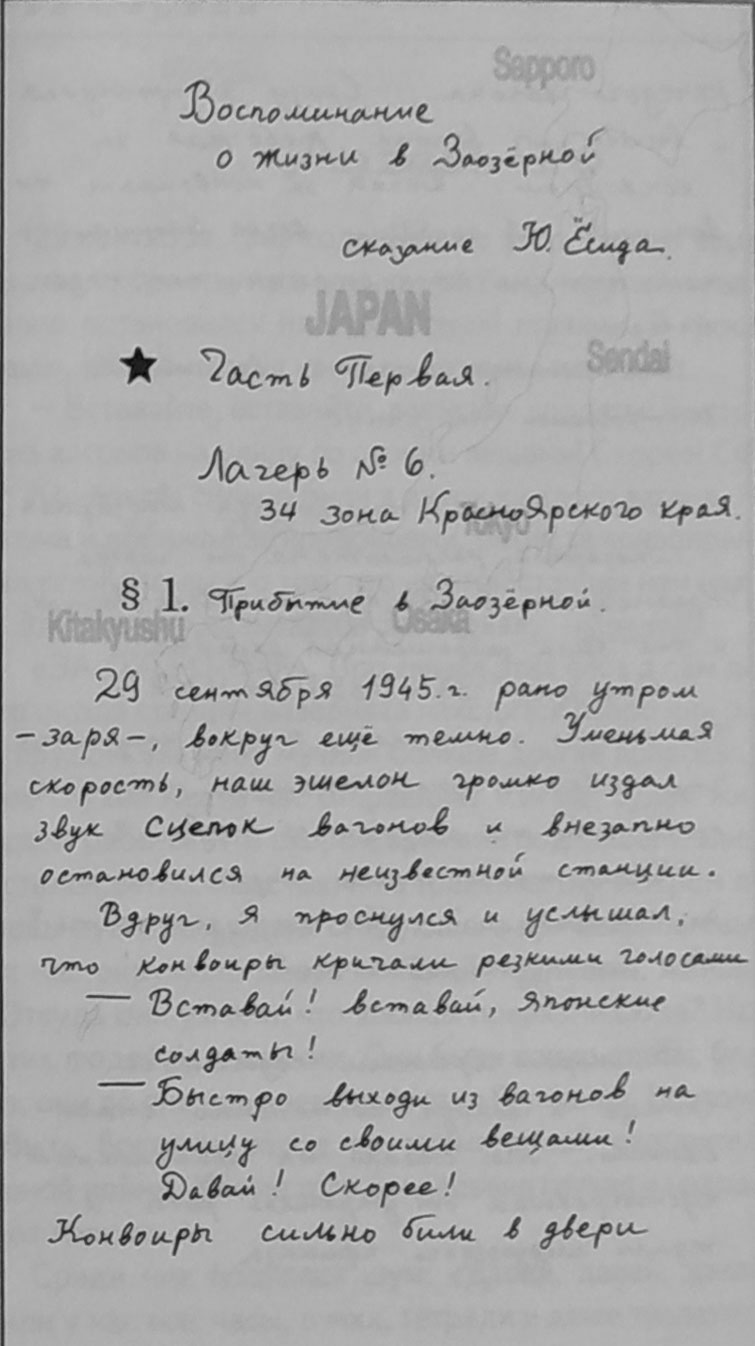 Sapporo
Воспоминание
о жизни в Заозёрной
сказание Ю. Ёсида.
JAPAN
Sendai
★ Часть Первая.
Лагерь № 6.
34 зона КрасноЯрского края.
Tokyo
§ 1. Прибытие в Заозёрной.
Kitakyushu
Osaka
29 сентября 1945.г. рано утром
–заря–, вокруг ещё темно. Уменьмая
скорость, наш эшелон громко издал
звук сцепок вагонов и внезапно
остановился на неизвестной станции.
Вдруг, я проснулся и услышал,
что конвоиры кричали резкими голосами
— Вставай! вставай, японские
солдаты!
— Быстро выходи из вагонов на
улицу со своими вещами!
Давай! Скорее!
Конвоиры сильно били в двери